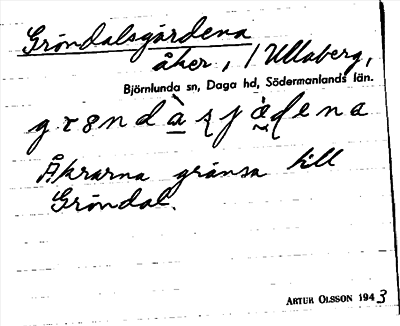 Gröndalsgärdena
åker, / Ullaberg,
Björnlunda sn, Daga hd, Södermanlands län.
Åkrarna gränsa till
Gröndal.
ARTUR OLSSON 1943